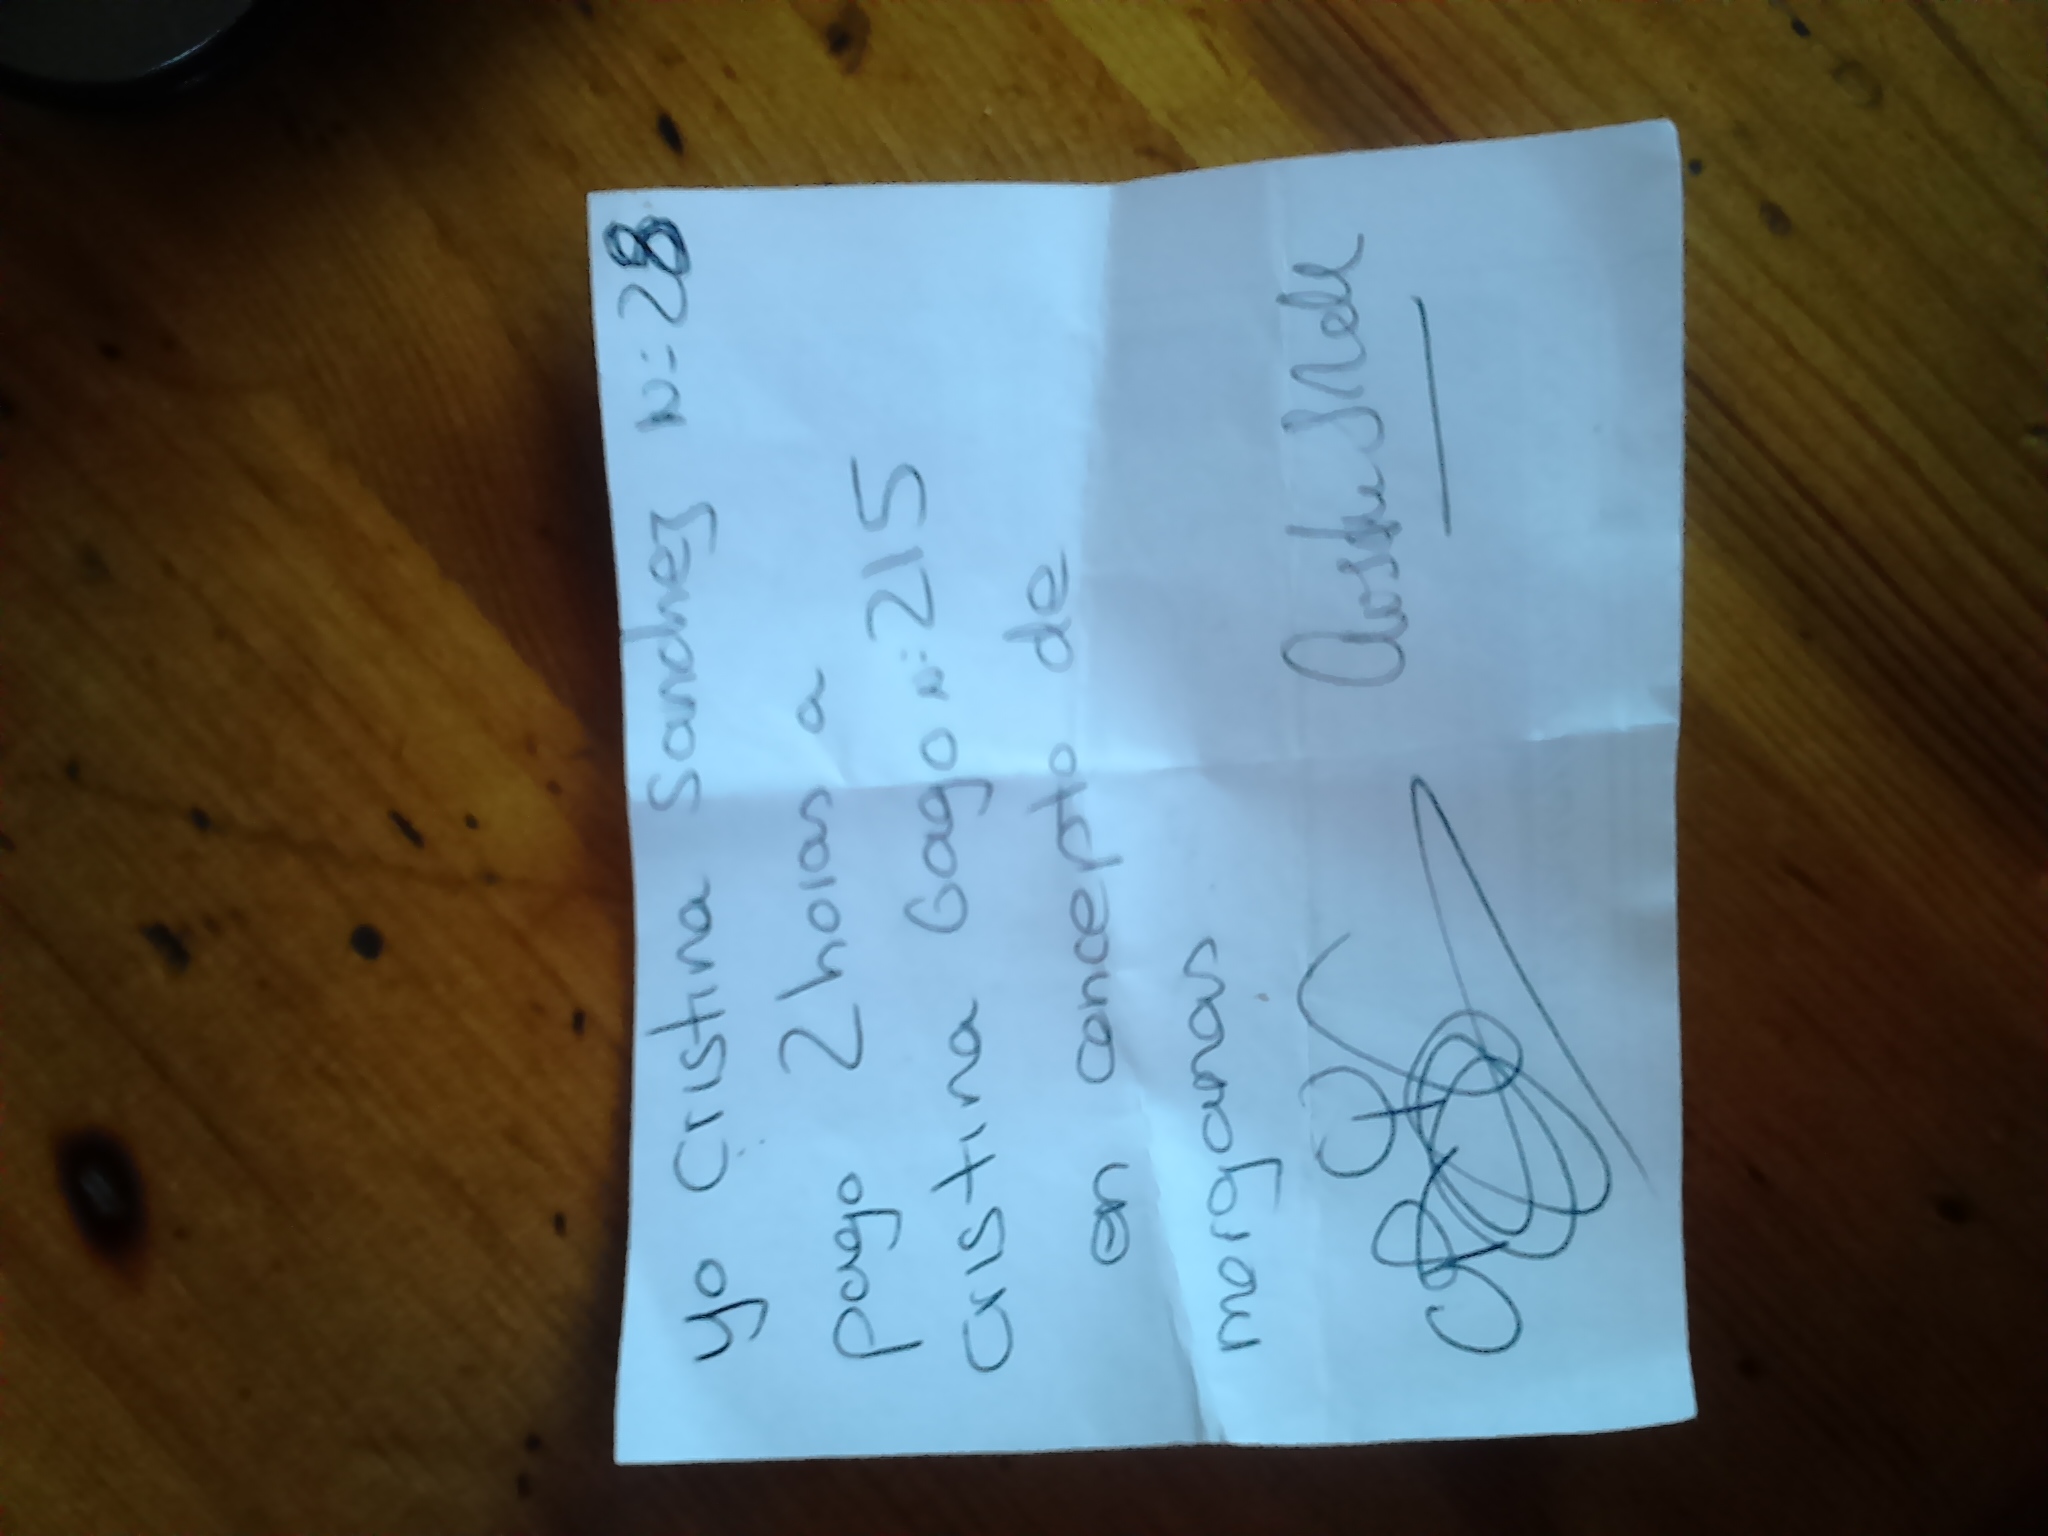 yo Cristina Sanchez N: 28
pago 2 horas a
Cristina Gago N: 215
en concepto de
morganas